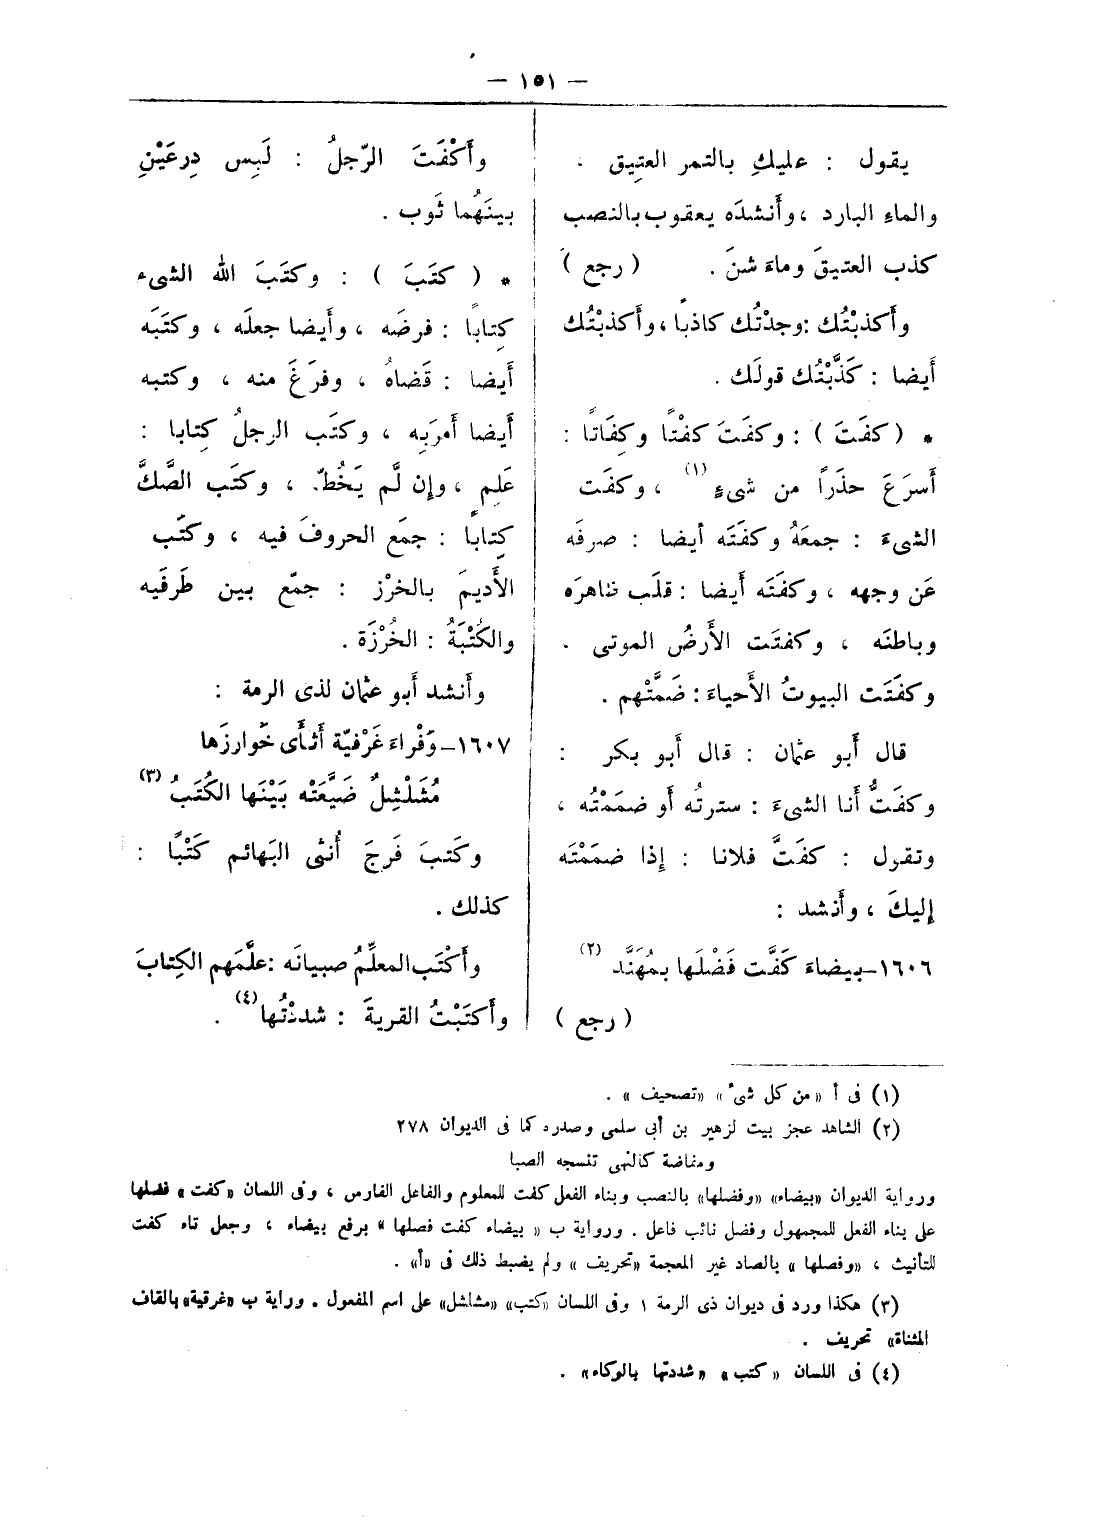 — ١٥١ —
يقول : عليكِ بالتمر العتِيق .
والماءِ البارد ، وأَنشدَه يعقوب بالنصب
كذب العتيقَ وماءَ شنَ . ( رجع )
وأَكذبْتُك : وجدْتُك كاذباً ، وأَكذبْتُك
أَيضا : كَذَّبْتُك قولَك .
* ( كفَتَ ) : وكفَتَ كفْتًا وكِفَاتًا :
أَسرَعَ حذَراً من شىءٍ (١) ، وكفَت
الشىءَ : جمعَهُ وكفَتَه أيضا : صرفَه
عَن وجهه ، وكفَتَه أَيضا : قلَب ظاهرَه
وباطنَه ، وكفتَت الأَرضُ الموتى .
وكفَتَت البيوتُ الأَحياءَ : ضَمَّتْهم .
قال أَبو عثمان : قال أَبو بكر :
وكفَتُّ أَنا الشىءَ : سترتُه أَو ضمَمْتُه ،
وتقول : كفَتَّ فلانا : إِذا ضمَمْتَه
إِليكَ ، وأَنشد :
١٦٠٦–بيضاءَ كَفَّت فَضْلَها بمُهَنَّد (٢)
( رجع )
وأَكْفَتَ الرّجلُ : لَبِس دِرعَيْنِ
بينَهُما ثَوب .
* ( كتَبَ ) : وكتَبَ اللّٰه الشىء
كِتاباً : فرضَه ، وأَيضا جعلَه ، وكتَبَه
أَيضا : قَضاهُ ، وفرَغَ منه ، وكتبه
أَيضا أَمرَبِه ، وكتَب الرجلُ كِتابا :
عَلِم ، وإِن لَّم يَخُطّ. ، وكتَب الصَّكَّ
كِتاباً : جمَع الحروفَ فيه ، وكتَب
الأَديمَ بالخرْز : جمّع بين طَرفَيه
والكُتْبَةُ : الخُرْزَة .
وأَنشد أَبو عثمان لذى الرمة :
١٦٠٧–وَفْراءَ غَرْفيّة أَثأَى خَوارزَها
مُشَلْشِلٌ ضَيَّعَتْه بَيْنَها الكُتَبُ (٣)
وكتبَ فَرجَ أُنثى البَهائم كَتْبًا :
كذلك .
وأَكْتَب المعلِّمُ صبيانَه : علَّمَهم الكِتابَ
وأَكتَبْتُ القربةَ : شددْتُها (٤) .
(١) فى أ «من كل شىء» «تصحيف» .
(٢) الشاهد عجز بيت لزهير بن أبى سلمى وصدره كما فى الديوان ٢٧٨
ومفاضة كالنهى تنسجه الصبا
ورواية الديوان «بيضاء» «وفضلها» بالنصب وبناء الفعل كفت للمعلوم والفاعل الفارس ، وفى اللسان «كفت» فضلها
على بناء الفعل للمجمهول وفضل نائب فاعل . ورواية ب « بيضاء كفت فصلها » برفع بيضاء ، وجعل تاء كفت
للتأنيث ، «وفصلها» بالصاد غير المعجمة «تحريف» ولم يضبط ذلك فى «أ» .
(٣) هكذا ورد فى ديوان ذى الرمة ١ وفى اللسان «كتب» «مشلشل» على اسم المفعول . ورواية ب «غرقية» بالقاف
المثناة» تحريف .
(٤) فى اللسان « كتب » «شددتها بالوكاء» .